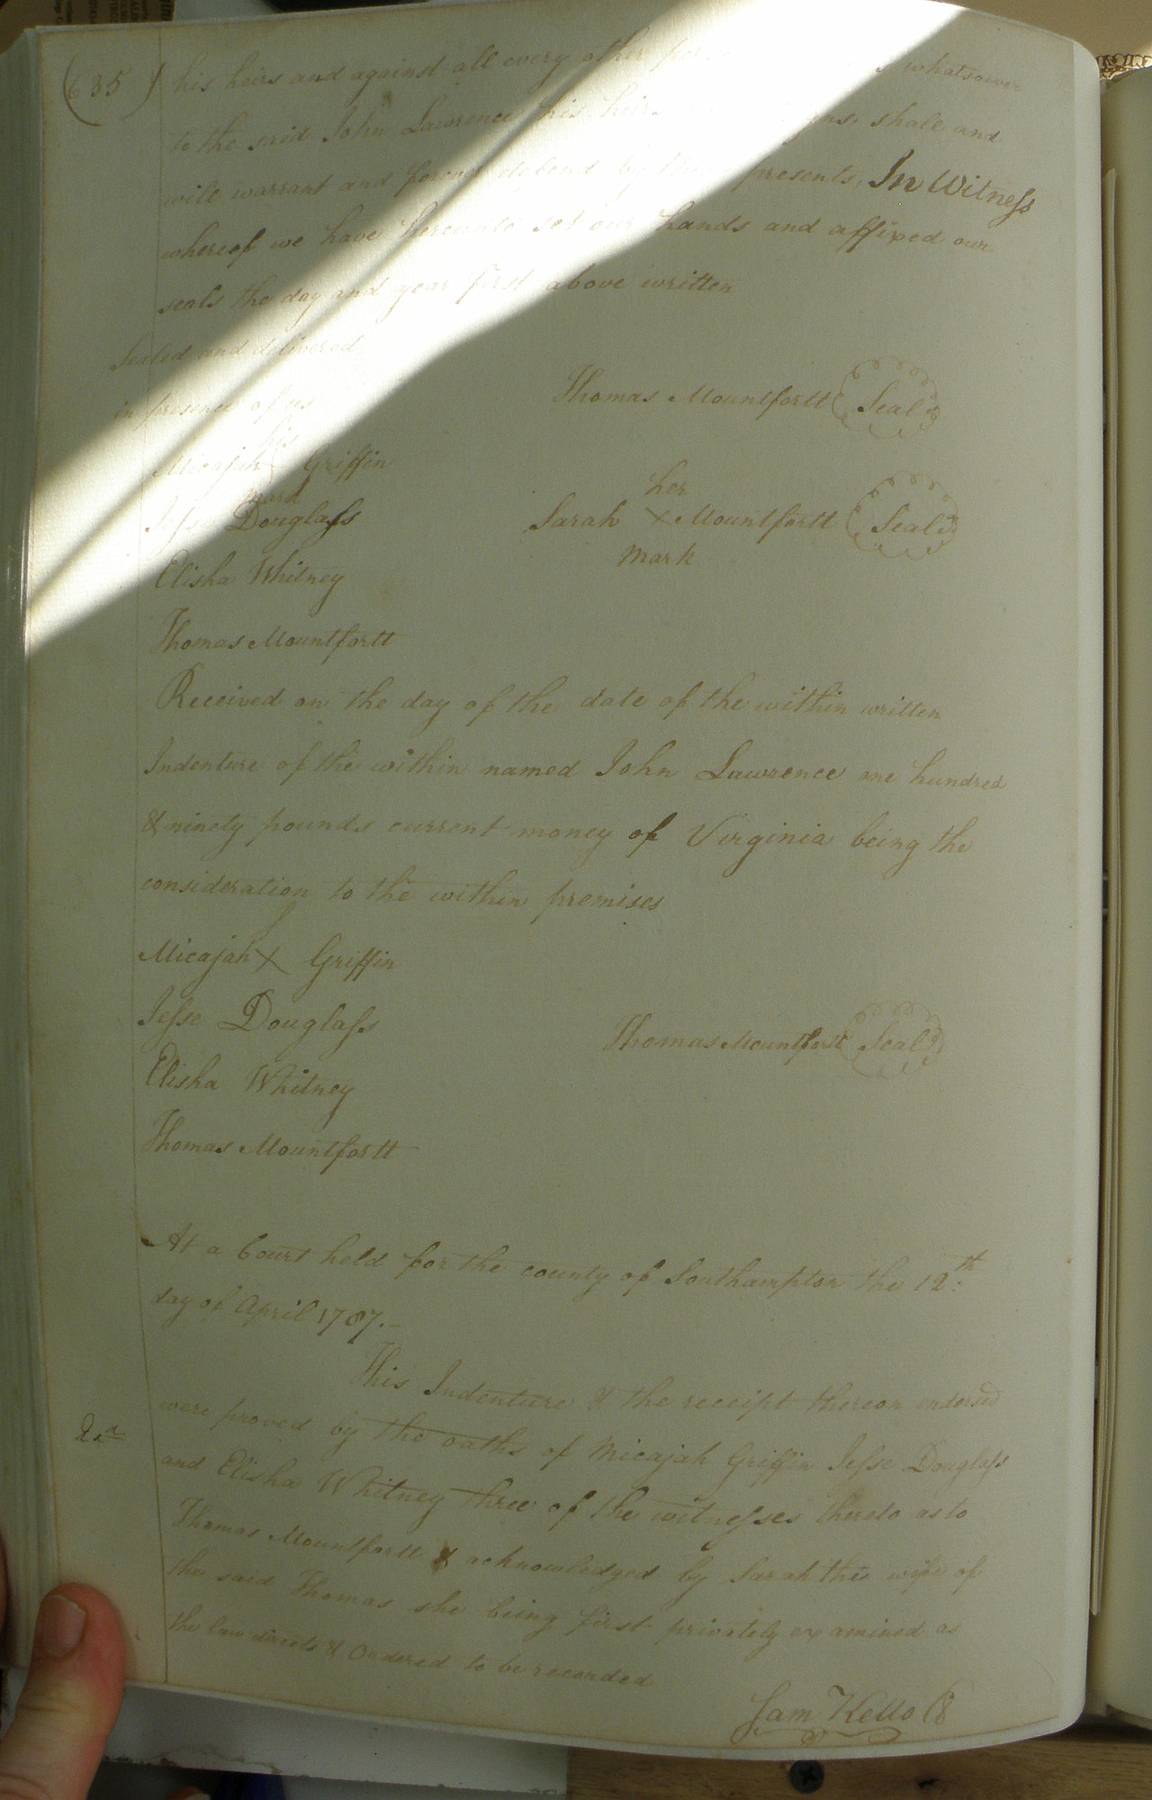 (635)
his heirs and against all every other whatsoever
to the said John Lawrence his heirs shall and
will warrant and forever defend by these presents, In Witneſs
whereof we have hereunto set our hands and affixed our
seals the day and year first above written
Sealed and delivered
in presence of us
Thomas Mountfortt Seal
his
Micajah X Griffin
mark
her
Jeſse Douglaſs Sarah X Mountfortt Seal
mark
Elisha Whitney
Thomas Mountfortt
Received on the day of the date of the within written
Indenture of the within named John Lawrence one hundred
& ninety pounds current money of Virginia being the
consideration to the within premises
Micajah X Griffin
Jeſse Douglaſs
Thomas Mountfortt Seal
Elisha Whitney
Thomas Mountfortt
At a Court held for the county of Southampton the 12th
day of April 1787.-
This Indenture & the receipt thereon indorsed
were proved by the oaths of Micajah Griffin Jeſse Douglaſs
and Elisha Whitney three of the witneſses thereto as to
Thomas Mountfortt & acknowledged by Sarah the wife of
the said Thomas she being first privately examined as
the law directs & Ordered to be recorded
Sam Kello C